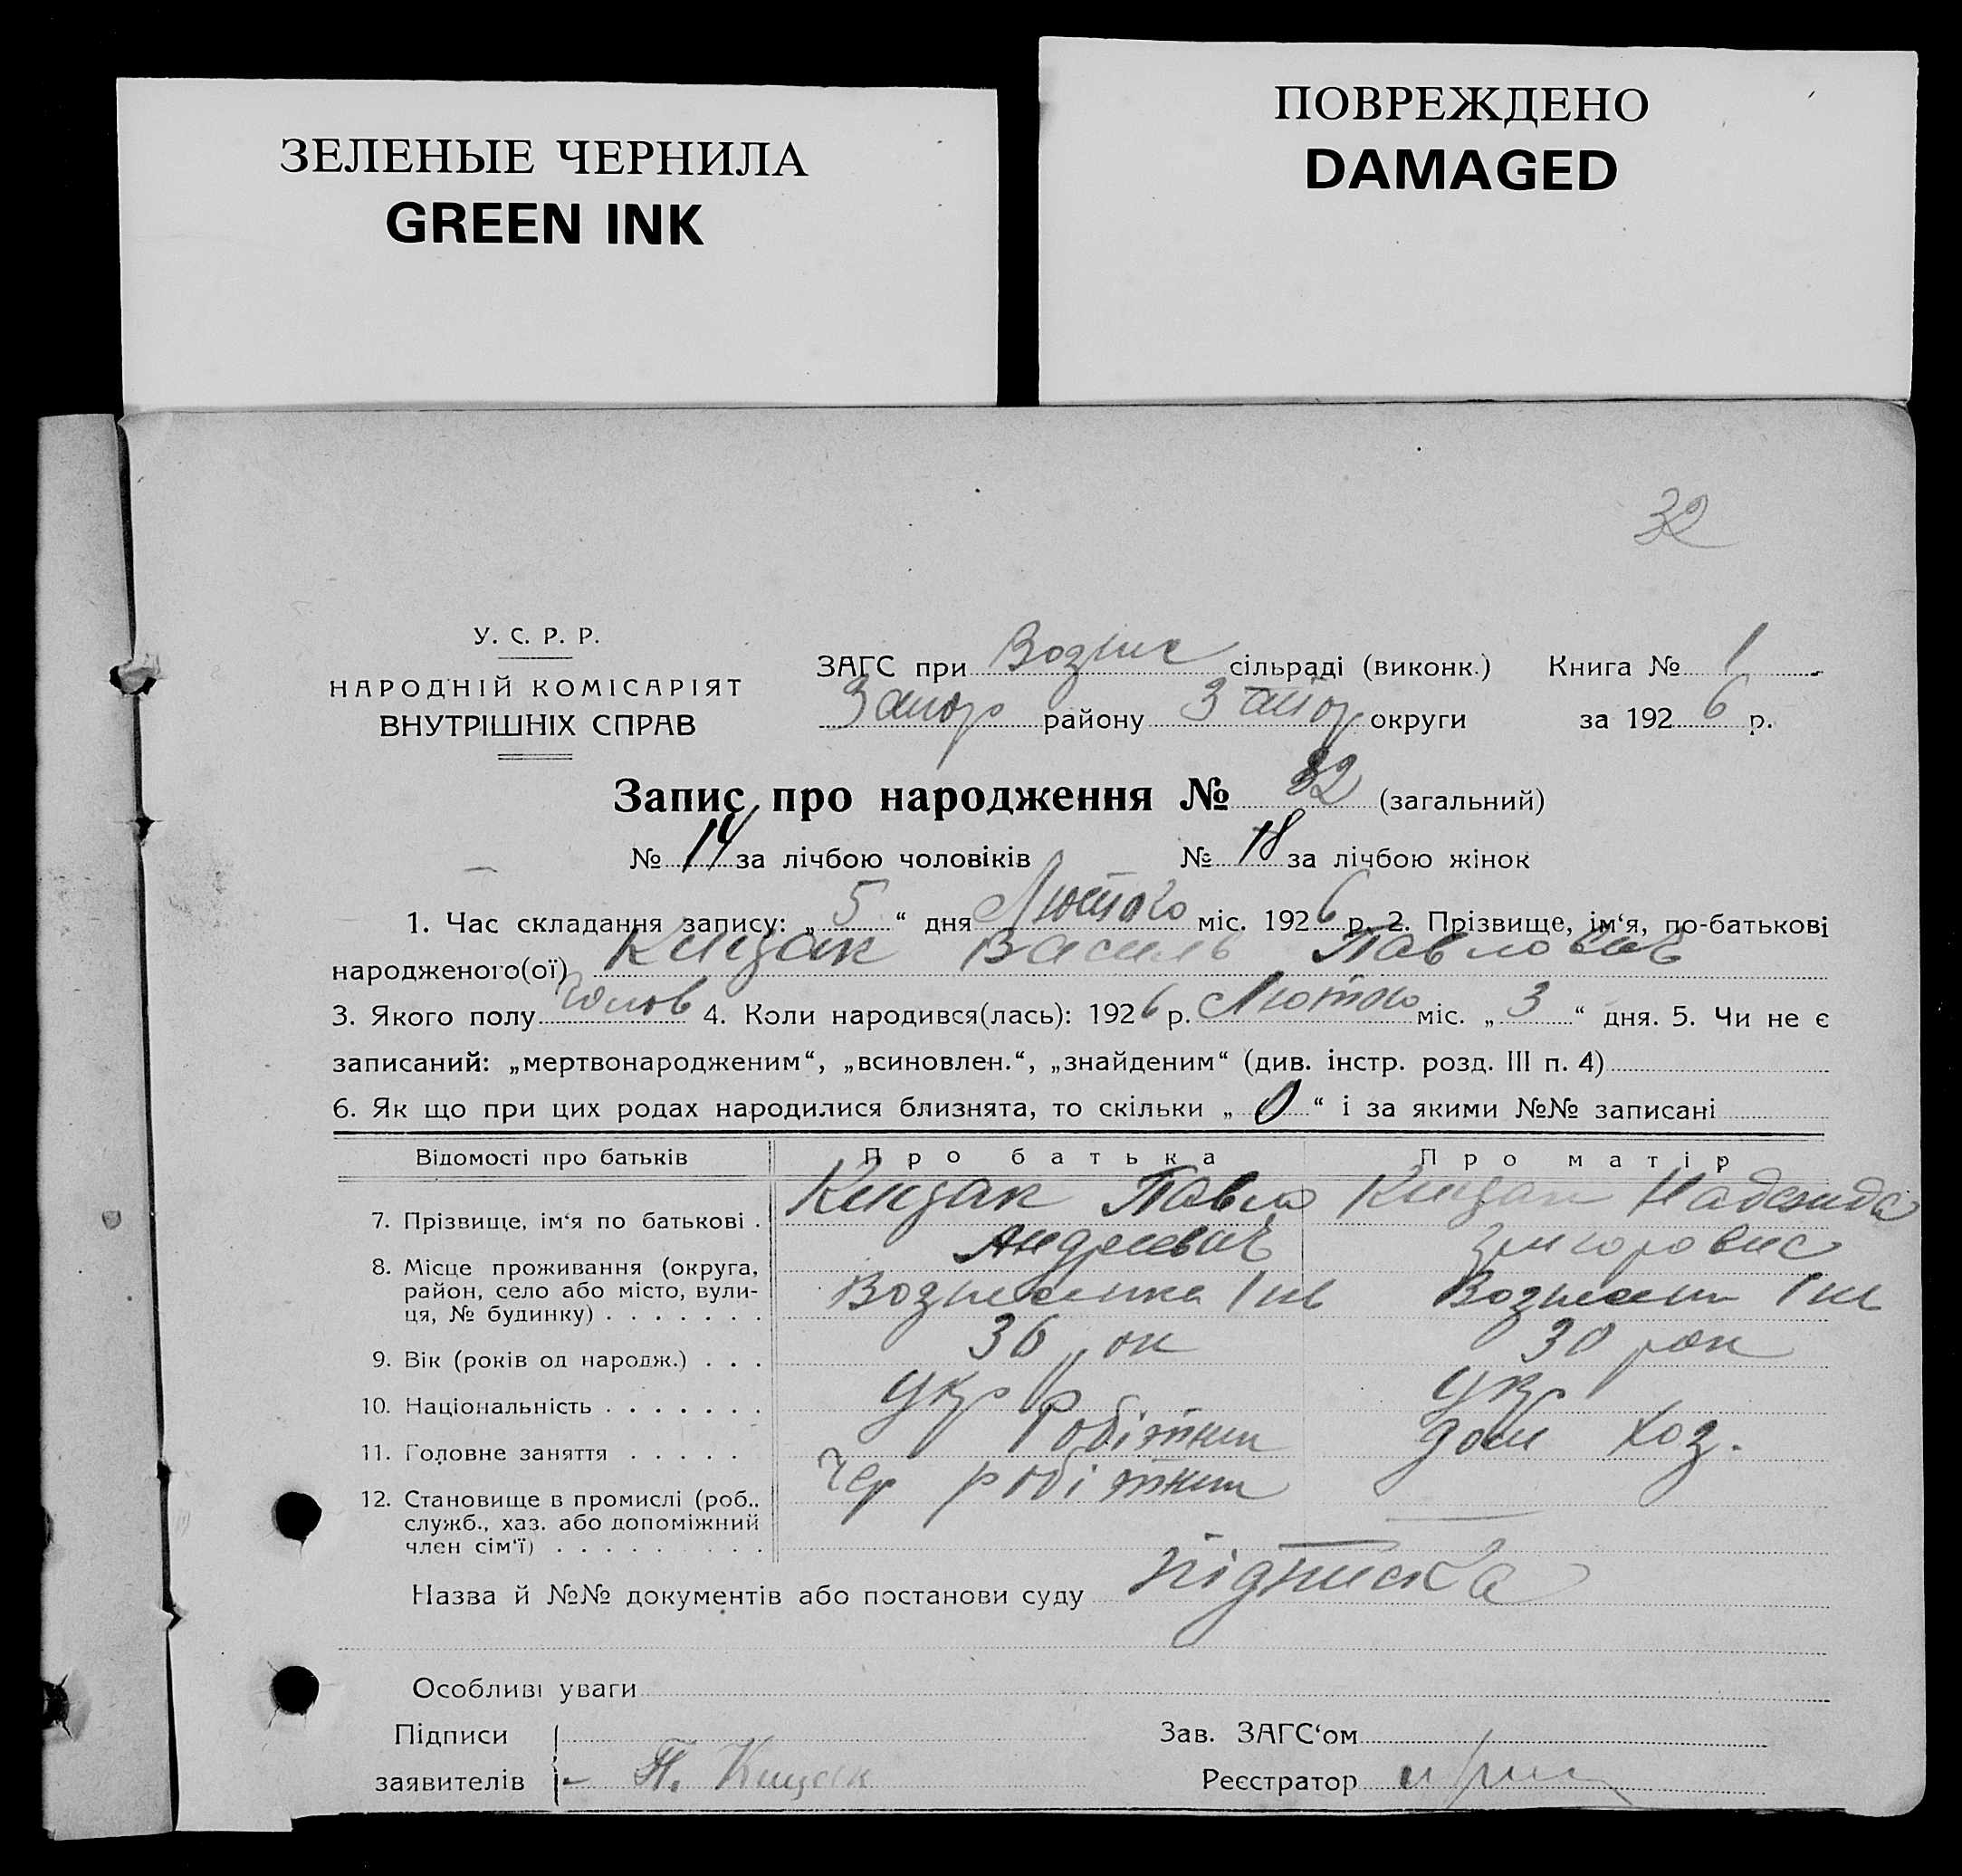 ЗЕЛЕНЫЕ ЧЕРНИЛА
GREEN INK
ПОВРЕЖДЕНО
DAMAGED
32
У. С. Р. Р.
НАРОДНІЙ КОМІСАРІЯТ
ВНУТРІШНІХ СПРАВ
ЗАГС при Вознес сільраді (виконк.) Книга № 1
Запор району Запор округи за 1926 р.
Запис про народження № 32 (загальний)
№ 14 за лічбою чоловіків № 18 за лічбою жінок
1. Час складання запису: „5“ дня Лютого міс. 1926 р. 2. Прізвище, ім‘я, по-батькові
народженого(ої) Кицак Василь Павлович
3. Якого полу Чолов 4. Коли народився(лась): 1926 р. Лютого міс. „3“ дня. 5. Чи не є
записаний: „мертвонародженим“, „всиновлен.“, „знайденим“ (див. інстр. розд. III п. 4)
6. Як що при цих родах народилися близнята, то скільки „0“ і за якими №№ записані
Відомості про батьків Про батька Про матір
7. Прізвище, ім‘я по батькові . Кицак Павло Кицак Надежда
Андреевич Григоровис
8. Місце проживання (округа,
район, село або місто, вули-
ця, № будинку) . . . . . . . Вознесенка
9. Вік (років од народж.) . . . 36 рок 30 рок
10. Національність . . . . . . . Укр Укр
11. Головне заняття . . . . . Робітник дом хоз.
12. Становище в промислі (роб.,
служб., хаз. або допоміжний
член сім‘ї) . . . . . . . . . Чер робітник —
Назва й №№ документів або постанови суду підписка
Особливі уваги
Підписи
заявителів П. Кицак
Зав. ЗАГС‘ом
Реєстратор